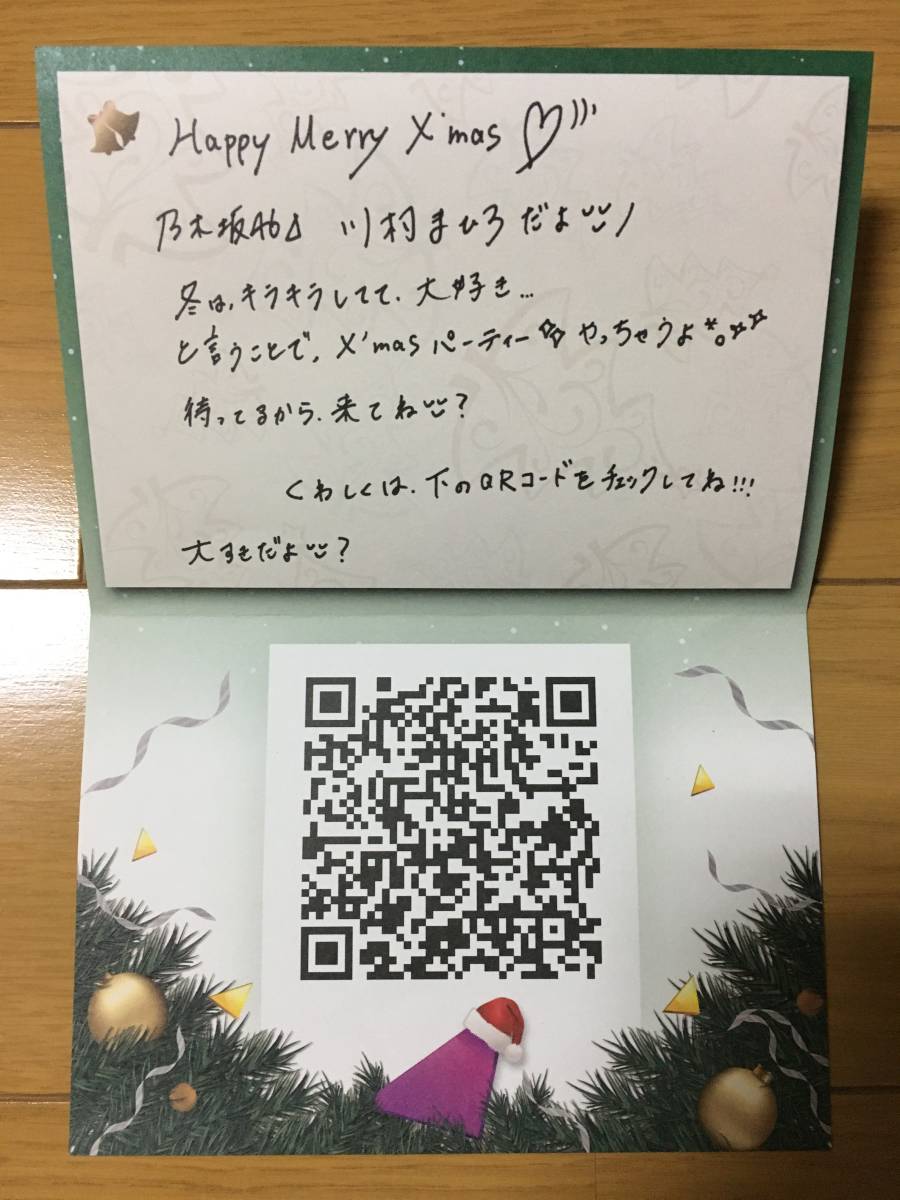 Happy Merry X'mas ♡
乃木坂46△ 川村まひろだよ
冬は、キラキラしてて、大好き...
と言うことで、X'mas パーティー☆ やっちゃうよ*。☆☆
待ってるから、来てね?
くわしくは、下のQRコードをチェックしてね!!!
大すきだよ?